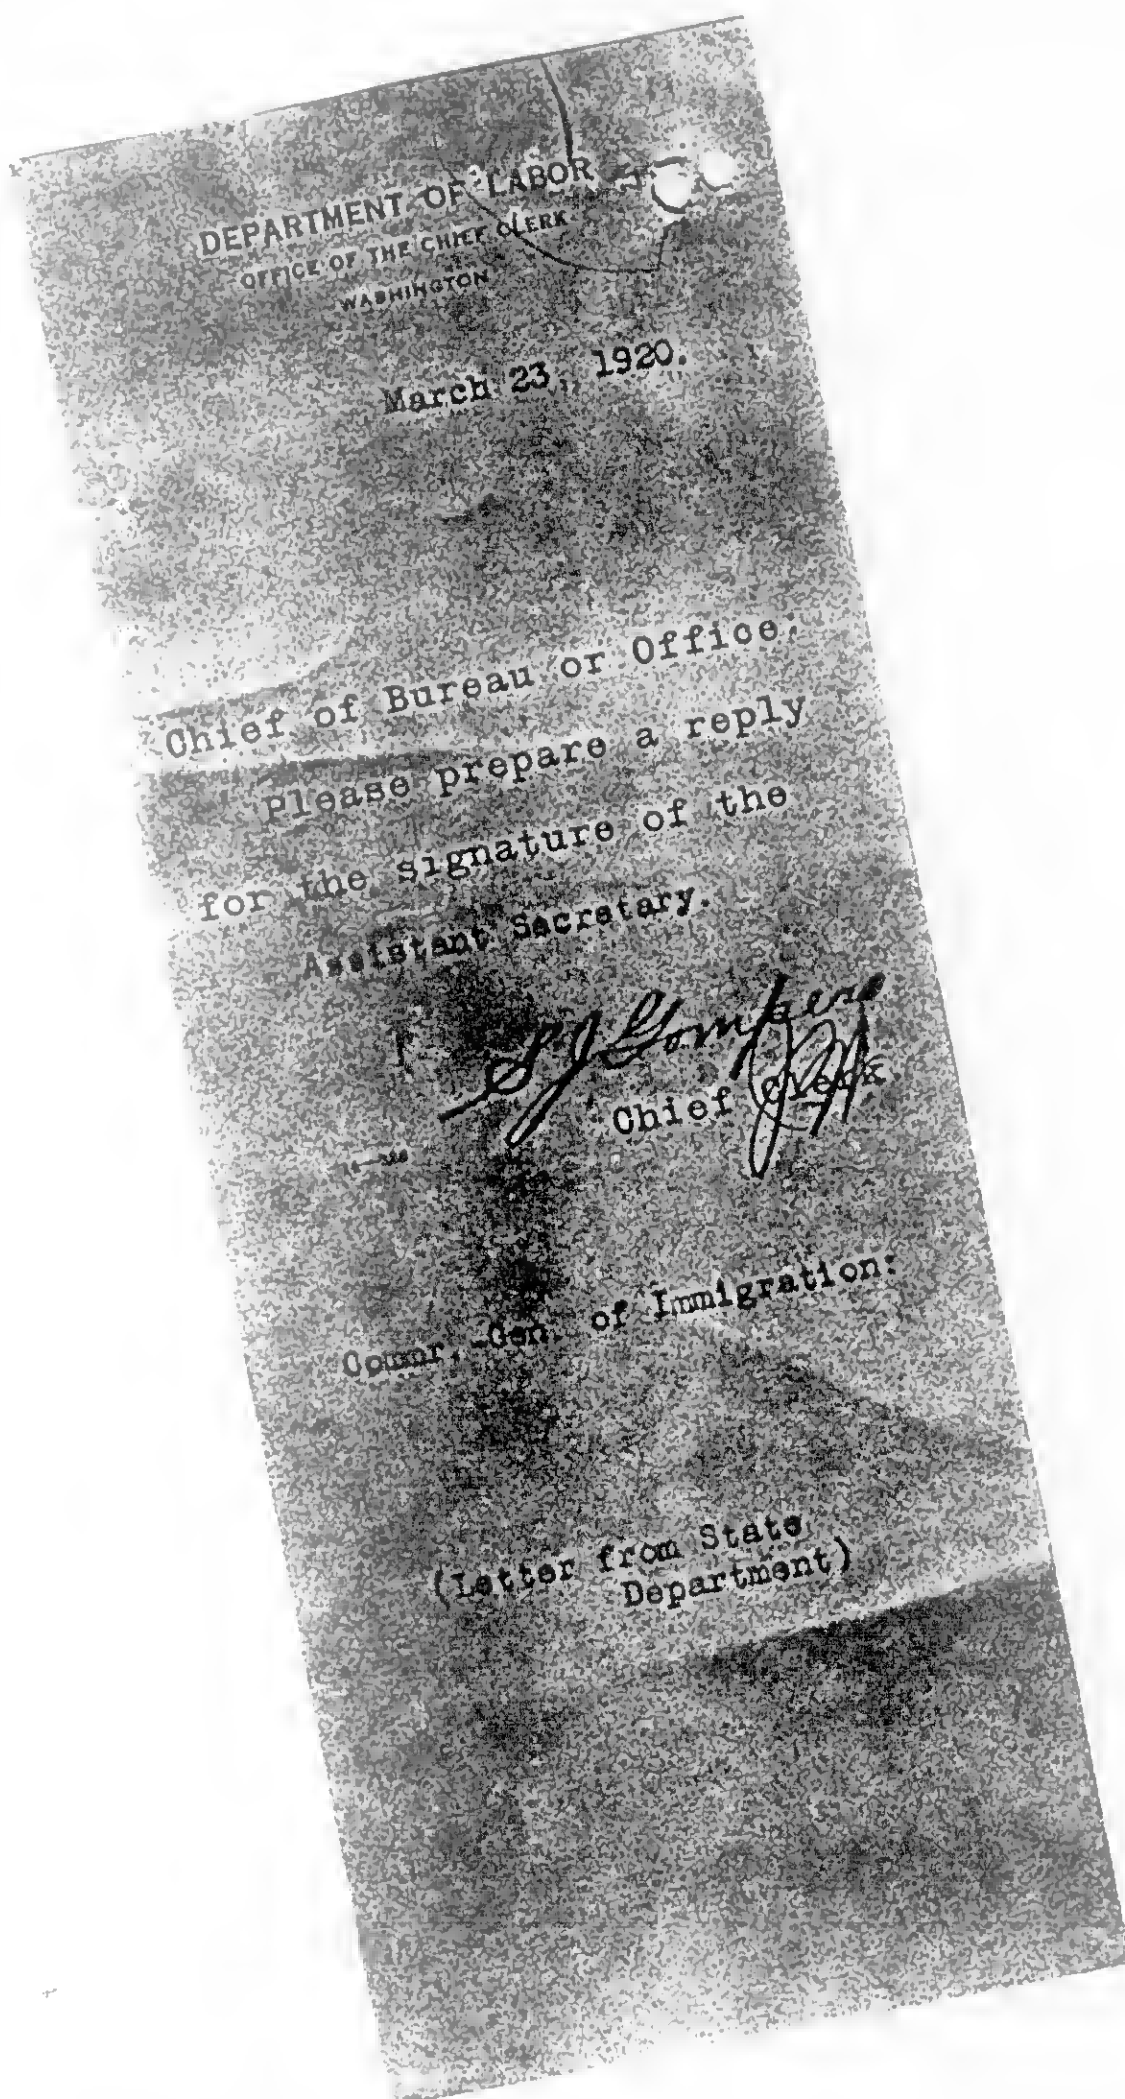 DEPARTMENT OF LABOR
OFFICE OF THE CHIEF CLERK
WASHINGTON
March 23, 1920.
Chief of Bureau or Office:
Please prepare a reply
for the signature of the
Assistant Secretary.
S J Gompers
Chief Clerk.
Commr.-Gen. of Immigration:
(Letter from State
Department)